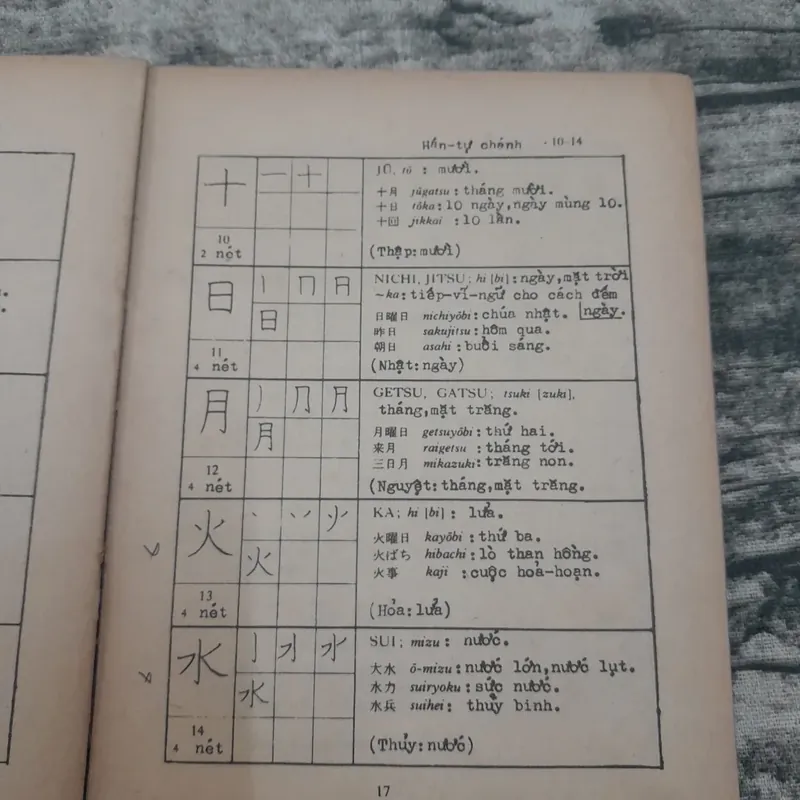 Hán-tự chánh · 10-14
十 一 十
JŪ, tô : mười.
十月 jūgatsu : tháng mười.
十日 tôka : 10 ngày, ngày mùng 10.
十回 jikkai : 10 lần.
10
2 nét
(Thập: mười)
日 丨 冂 日
日
NICHI, JITSU; hi [bi] : ngày, mặt trời
~ka : tiếp-vĩ-ngữ cho cách đếm ngày.
日曜日 nichiyōbi : chúa nhật.
昨日 sakujitsu : hôm qua.
朝日 asahi : buổi sáng.
11
4 nét
(Nhật: ngày)
月 丿 ⺆ 月
月
GETSU, GATSU; tsuki [zuki],
tháng, mặt trăng.
月曜日 getsuyōbi : thứ hai.
来月 raigetsu : tháng tới.
三日月 mikazuki : trăng non.
12
4 nét
(Nguyệt: tháng, mặt trăng.
火 丶
火
KA; hi [bi] : lửa.
火曜日 kayōbi : thứ ba.
火ばち hibachi : lò than hồng.
火事 kaji : cuộc hoả-hoạn.
13
4 nét
(Hỏa: lửa)
水 亅 水
水
SUI; mizu : nước.
大水 ō-mizu : nước lớn, nước lụt.
水力 suiryoku : sức nước.
水兵 suihei : thủy binh.
14
4 nét
(Thủy: nước)
17